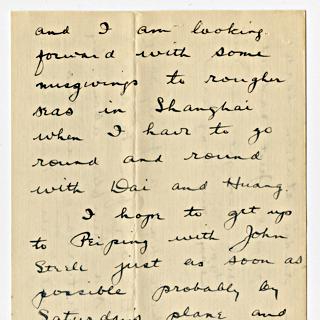 and I am looking
forward with some
misgivings to rougher
seas in Shanghai
when I have to go
round and round
with Dai and Huang.
I hope to get up
to Peiping with John
just as soon as
possible probably by
Saturdays plane and